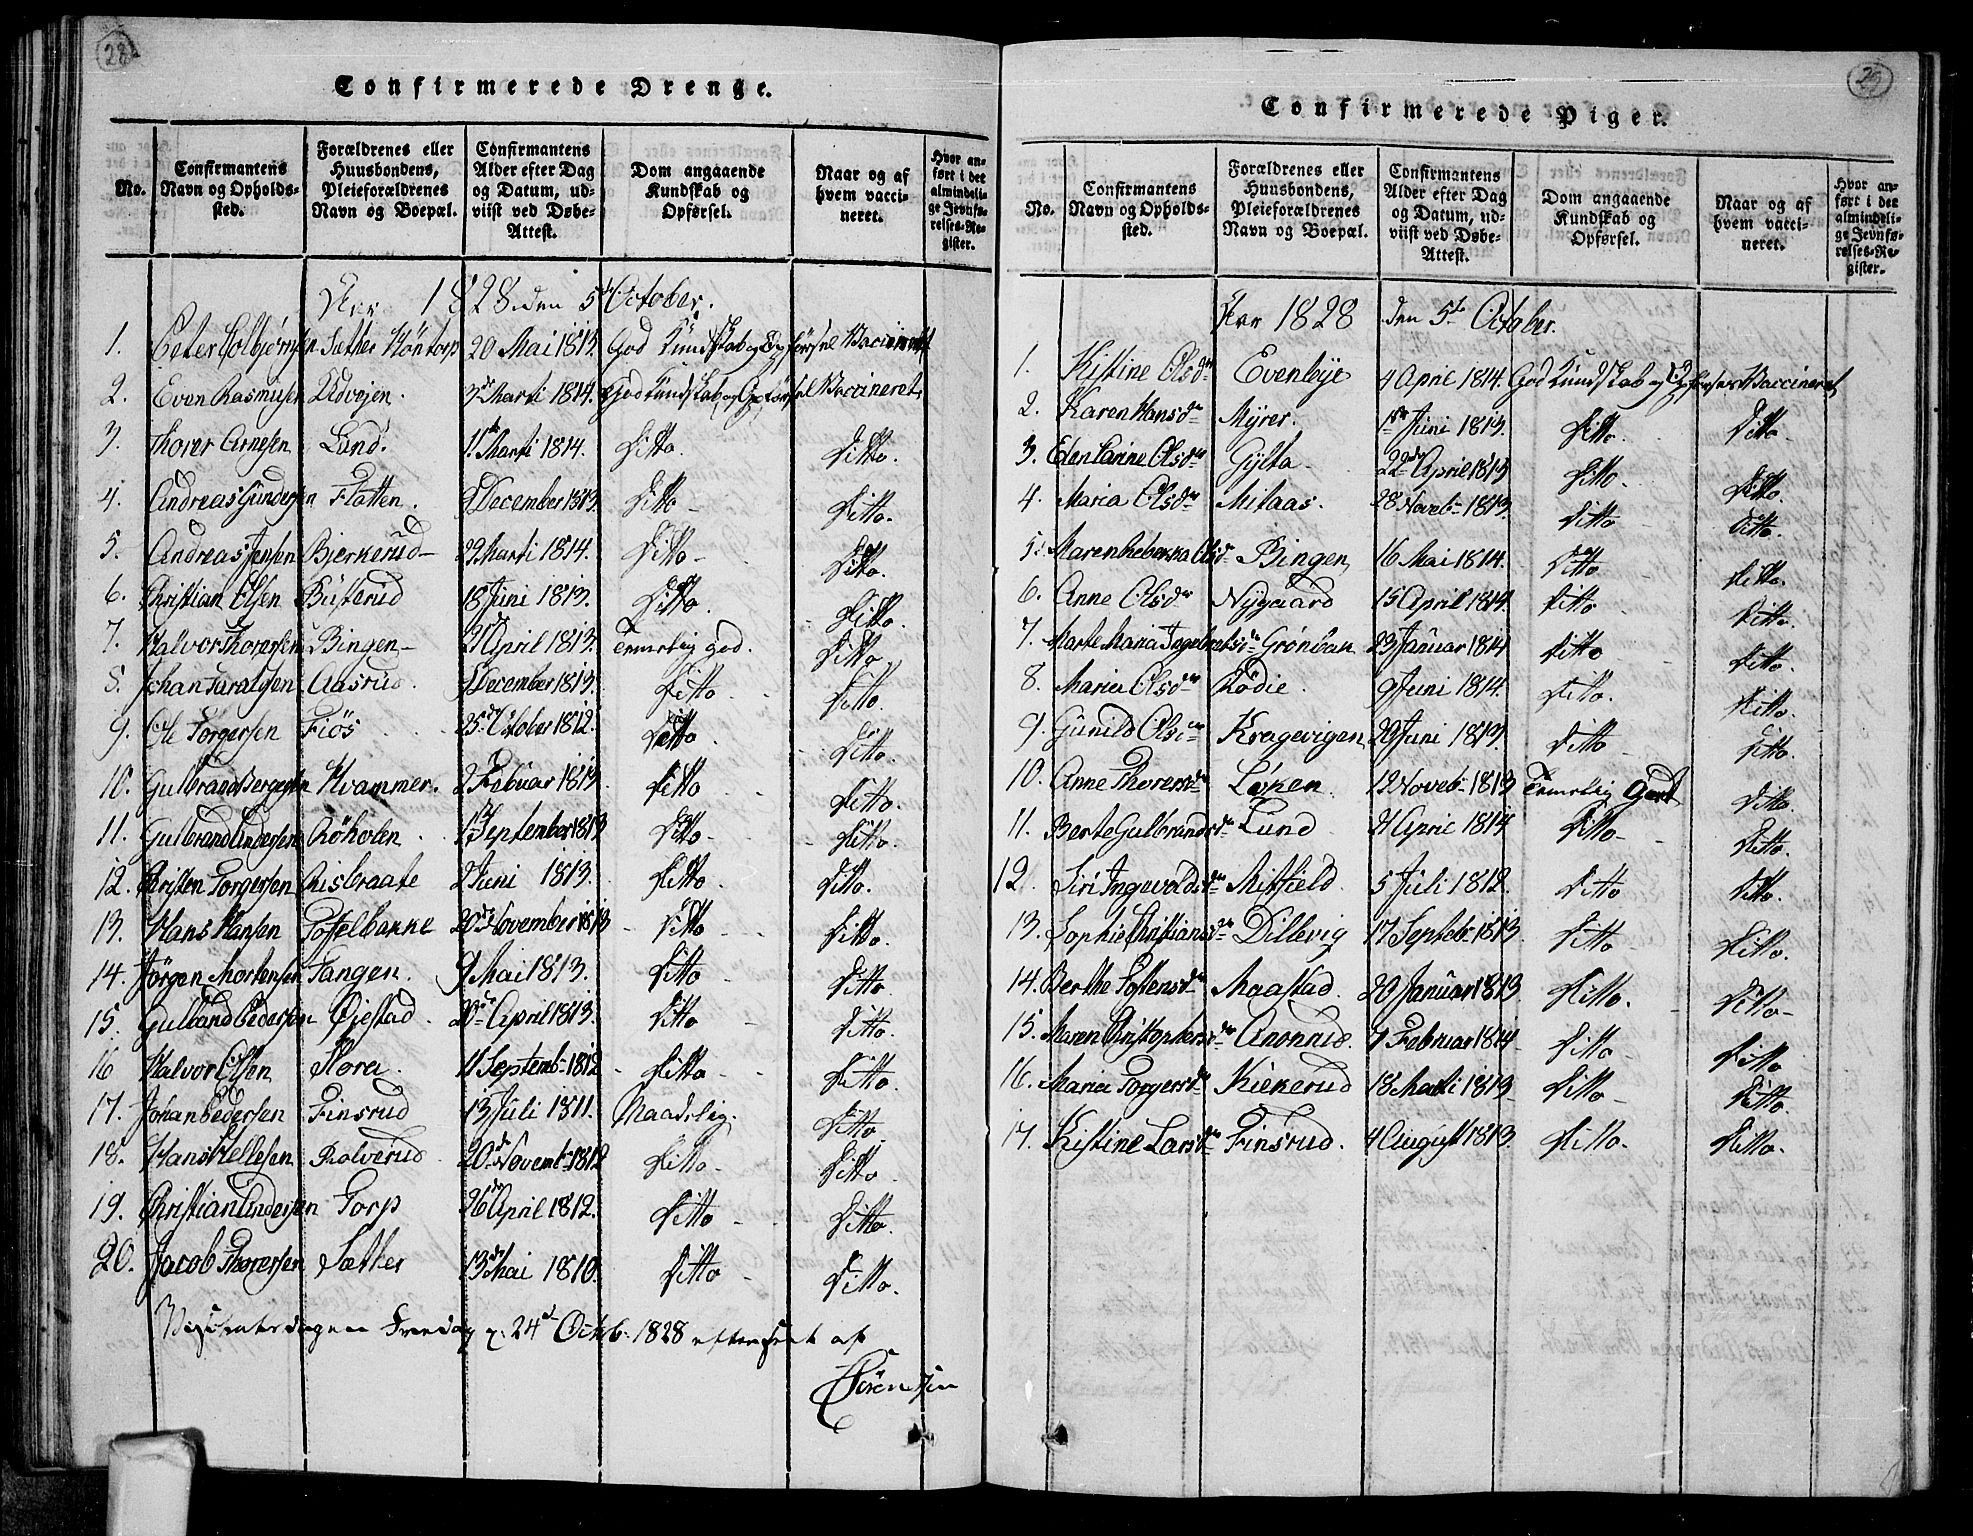 28
Confirmerede Drenge.
No. | Confirmantens Navn og Opholdssted. | Forældrenes eller Huusbondens, Pleieforældrenes Navn og Boepæl. | Confirmantens Alder efter Dag og Datum, udviist ved Døbe-Attest. | Dom angaaende Kundskab og Opførsel. | Naar og af hvem vaccineret. | Hvor anført i det almindelige Jevnførelses-Register.
Aar 1828 den 5te October.
1. Peter Colbjørnsen Sæther 20 Mai 1813. God Kundskab og Opførsel Vaccineret
2. Even Rasmusen Udvejen. 3de Marti 1814. God Kundskab og Opførsel Vaccineret
3. Thorer Arnesen Lund. 11te Marti 1814. Ditto. Ditto.
4. Andreas Gundersen Flatten. December 1813. Ditto Ditto.
5. Andreas Jensen Bjerkerud 29 Marti 1814. Ditto Ditto.
6. Christian Olsen Busterud 18 Juni 1813. Ditto. Ditto.
7. Halvor Thoresen Bingen 21 April 1813. Temmelig god. Ditto
8. Johan Aasrud. December 1813. Ditto Ditto.
9. Ole Torgersen Fiøs 25de October 1812. Ditto Ditto.
10. Gulbrand Bergesen Hvammer. 2 Febuar 1813 Ditto Ditto.
11. Gulbrand Andersen Røholen September 1813 Ditto Ditto.
12. Christen Torgersen Risbraate 2 Juni 1813. Ditto. Ditto.
13. Hans Hansen Toffelbakke 20de November 1813 Ditto Ditto.
14. Jörgen Mortensen Tangen. 9 Mai 1813. Ditto Ditto.
15. Gulbrand Pedersen Øiestad 20de April 1813. Ditto Ditto.
16 Halvor Olsen Hora. 11 Septemb. 1812 Ditto Ditto.
17. Johan Pedersen Finsrud 13 Juli 1811. Maadelig. Ditto
18. Hans Hellesen Ralverud 20de Novemb. 1812 Ditto Ditto.
19. Christian Andersen Torp 26de April 1812. Ditto Ditto.
20. Jacob Thoresen Sæther 13de Mai 1810. Ditto Ditto.
Visitatsdagen Fredag d. 24de Octob. 1828 efterseet af
Sörensen
29
Confirmerede Piger.
No. | Confirmantens Navn og Opholdssted. | Forældrenes eller Huusbondens, Pleieforældrenes Navn og Boepæl. | Confirmantens Alder efter Dag og Datum, udviist ved Døbe-Attest. | Dom angaaende Kundskab og Opførsel. | Naar og af hvem vaccineret. | Hvor anført i det almindelige Jevnførelses-Register.
Aar 1828 den 5te October.
1. Kistine Olsdr Evenbye 4 April 1814. God Kundskab og Opførsel Vaccineret
2. Karen Hansdr Myrer. 1ste Juni 1813. Ditto. Ditto
3. Elen Carine Olsdr Gylta. 22de April 1813 Ditto. Ditto
4. Maria Olsdr Milaas. 28 Noveb. 1813. Ditto Ditto.
5. Maren Rebekka Olsd. Bingen 16 Mai 1814. Ditto Ditto.
6. Anne Olsdr Nygaard 15 April 1814. Ditto Ditto.
7. Marte Maria Ingebretsdr Grönban 23 Januar 1814 Ditto Ditto.
8. Maria Olsdr Rödie. 9 Juni 1814. Ditto. Ditto.
9. Gunild Olsdr Kragevigen 29 Juni 1813. Ditto Ditto.
10. Anne Thoresdr Loken. 12 Noveb. 1813 Temmelig God Ditto.
11. Berte Gulbrandsdr Lund 21 April 1814 Ditto Ditto.
12. Siri Ingevoldsdr Mitfield. 5 Juli 1812. Ditto Ditto.
13. Sophie Christiansdr Dillevig 17 Septeb. 1813 Ditto Ditto.
14. Berthe Tostensdr Maastad. 20 Januar 1813 Ditto. Ditto
15. Maren Christophersdr Anonnud. 7 Februar 1814 Ditto Ditto
16. Maria Torgersdr Kiekerud 18 Marti 1813 Ditto Ditto.
17. Kistine Larsdr Finsrud. 4 August 1813. Ditto. Ditto.